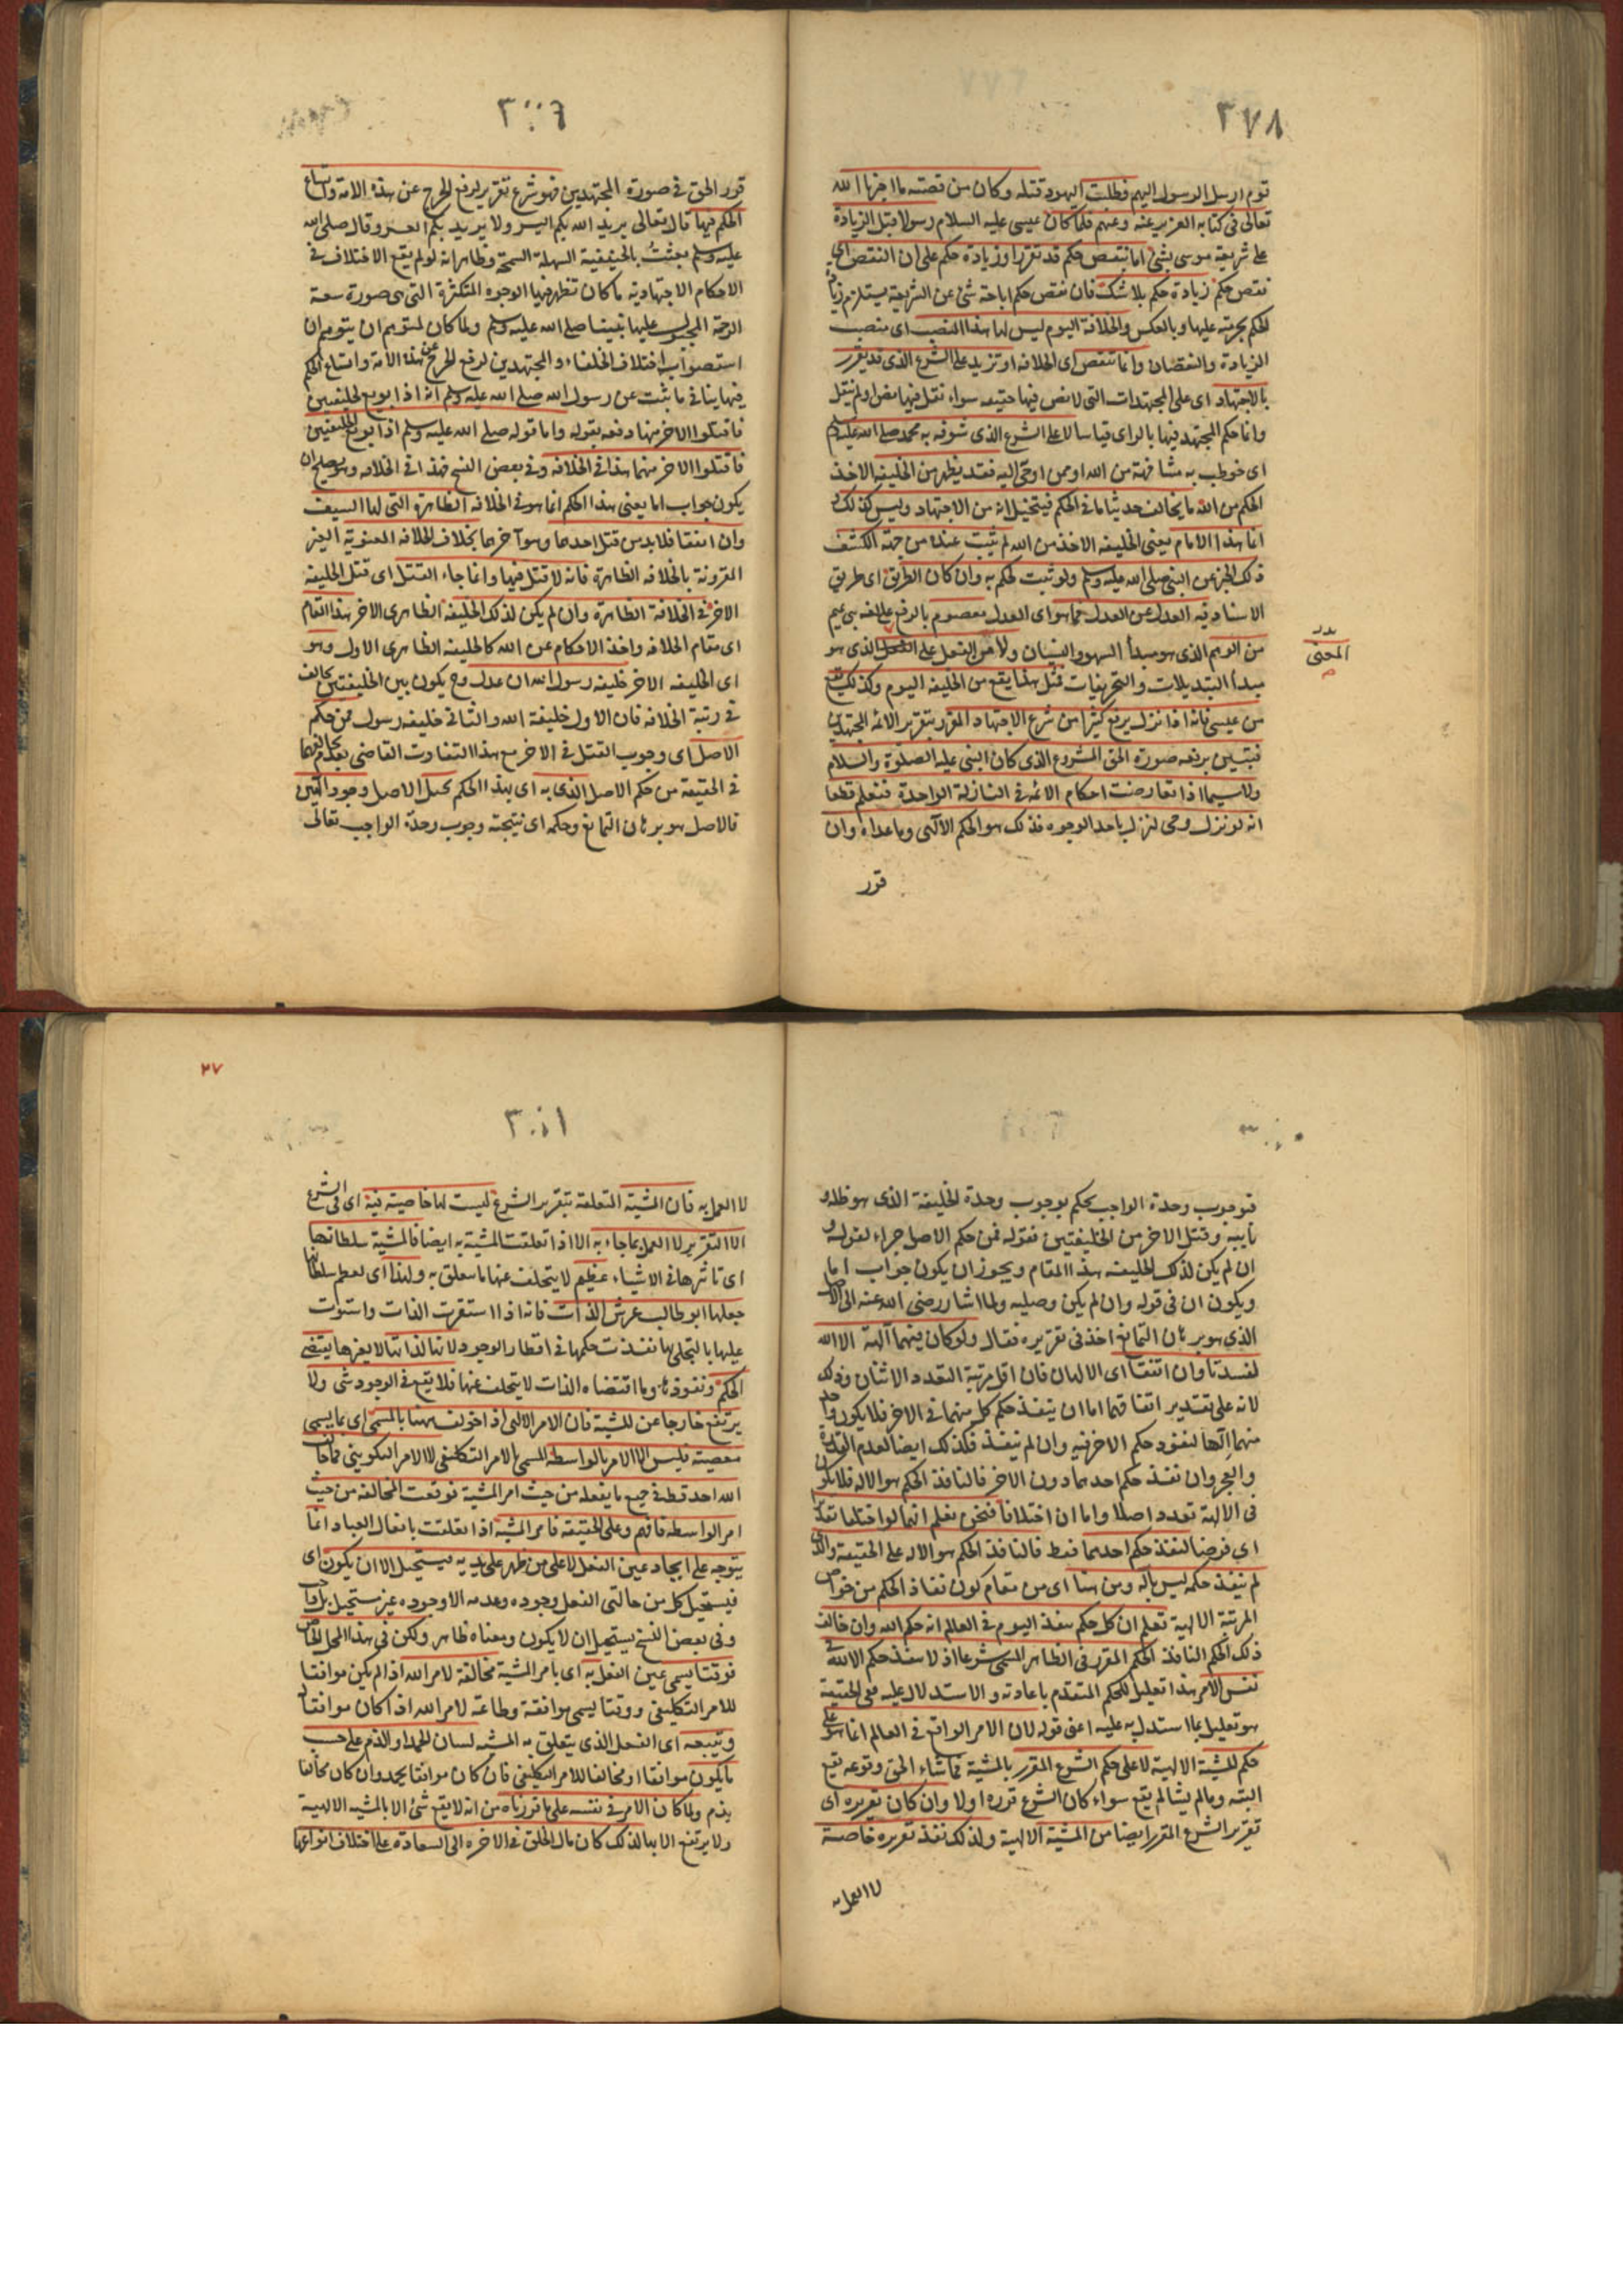 ٣٧٨
قوم ارسل الرسول اليهم فطلبت اليهود قتله وكان من قصته ما اخبرنا الله
تعالى فى كتابه العزيز عنه وعنهم فلما كان عيسى عليه السلام رسولا قبل الزيادة
على شريعة موسى بشئ اما بنقص حكم قد تقرر او زيادة حكم على ان النقص اى
نقص حكم زيادة حكم بلا شك فان نقص حكم اباحة شئ عن الشريعة يستلزم زيادة
الحكم بحرمته عليها وبالعكس والخلافة اليوم ليس لها هذا المنصب اى منصب
الزيادة والنقصان وانما تنقص اى الخلافه او تزيد على الشرع الذى قد يقرر
بالاجتهاد اى على المجتهدات التى لا نص فيها حقيقه سواء نقل فيها نص او لم ينقل
وانما حكم المجتهد فيها بالراى قياسا لا على الشرع الذى شوفه به محمد صلى الله عليه وسلم
اى خوطب به مشافهة من الله او ممن اوحى اليه فقد يظهر من الخليفه الاخذ
الحكم من الله ما يخالف حديثا ما فى الحكم فيتخيل انه من الاجتهاد وليس كذلك
انما هذا الامام يعنى الخليفه الاخذ من الله لم يثبت عنده من جهة الكشف
ذلك الخبر عن النبى صلى الله عليه وسلم ولو ثبت لحكم به وان كان الطريق اى طريق
الاسناد فيه العدل عن العدل فما هو اى العدل معصوم بالرفع على لغه بنى تميم
من الوهم الذى هو مبدأ السهو والنسيان ولا من النقل على المعنى الذى هو
المعنى
مبدأ التبديلات والتحريفات فمثل هذا يقع من الخليفه اليوم وكذلك يقع
من عيسى فانه اذا نزل يرفع كثيرا من شرع الاجتهاد المقرر بتقرير الائمه المجتهدين
فيتبين برفعه صورة الحق المشروع الذى كان النبى عليه الصلوة والسلام
ولا سيما اذا تعارضت احكام الائمه فى النازلة الواحدة فنعلم قطعا
انه لو نزل وحى لنزل باحد الوجوه فذلك هو الحكم الآلهى وما عداه وان
قرر
قرر الحق فى صورة المجتهدين فهو شرع تقرير لرفع الحرج عن هذه الامة واتساع
الحكم فيها قال تعالى يريد الله بكم اليسر ولا يريد بكم العسر وقال صلى الله
عليه وسلم بعثت بالحنيفية السهلة السمحة وظاهر انه لو لم يقع الاختلاف فى
الاحكام الاجتهادية ما كان تظهر فيها الوجوه المتكثرة التى هى صورة سعة
الرحمة المجبول عليها نبينا صلى الله عليه وسلم ولما كان لمتوهم ان يتوهم ان
استصواب اختلاف الخلفاء والمجتهدين لرفع الحرج عن هذه الامة واتساع الحكم
فيها ينافى ما ثبت عن رسول الله صلى الله عليه وسلم انه اذا بويع لخليفتين
فاقتلوا الاخر منهما دفعه بقوله واما قوله صلى الله عليه وسلم اذا بويع الخليفتين
فاقتلوا الاخر منهما هذا فى الخلافه وفى بعض النسخ فهذا فى الخلافه وهو يصلح ان
يكون جواب اما يعنى هذا الحكم انما هو فى الخلافه الظاهرة التى لها السيف
وان اتفقا فلا بد من قتل احدهما وهو آخرهما بخلاف الخلافه المعنوية الغير
المقرونة بالخلافه الظاهرة فانه لا قتل فيها وانما جاء القتل اى قتل الخليفه
الاخر فى الخلافة الظاهرة وان لم يكن لذلك الخليفة الظاهرى الاخر هذا المقام
اى مقام الخلافه واخذ الاحكام عن الله كالخليفه الظاهرى الاول وهو
اى الخليفه الاخر خليفه رسول الله ان عدل وح يكون بين الخليفتين تخالف
فى رتبة الخلافه فان الاول خليفة الله والثانى خليفه رسول فمن حكم
الاصل اى وجوب القتل فى الاخر مع هذا التفاوت القاضى بعدم تخالفهما
فى الحقيقة من حكم الاصل الذى به اى بهذا الحكم يخيل الاصل وجود آلهين
فالاصل هو برهان التمانع وحكمه اى نتيجته وجوب وحدة الواجب تعالى
فوجوب وحدة الواجب يحكم بوجوب وحدة الخليفة الذى هو ظله و
نايبه وقتل الاخر من الخليفتين فقوله فمن حكم الاصل جزاء لقوله و
ان لم يكن لذلك الخليفه هذا المقام ويجوز ان يكون جواب اما
ويكون ان فى قوله وان لم يكن وصليه ولما اشار رضى الله عنه الى الاصل
الذى هو برهان التمانع اخذ فى تقريره فقال ولو كان فيهما آلهة الا الله
لفسدتا وان اتفقا اى الالهان فان اقل مرتبة التعدد الاثنان وذلك
لانه على تقدير اتفاقهما اما ان ينفذ حكم كل منهما فى الاخر فلا يكون واحد
منهما آلها لنفوذ حكم الاخر فيه وان لم ينفذ فكذلك ايضا لعدم القدرة
والعجز وان نفذ حكم احدهما دون الاخر فالنافذ الحكم هو الاله فلا يكون
فى الالهة تعدد اصلا واما ان اختلافا فنحن نعلم انهما لو اختلفا تقديرا
اى فرضا لنفذ حكم احدهما فقط فالنافذ الحكم هو الاله على الحقيقة والذى
لم ينفذ حكمه ليس بآله ومن هنا اى من مقام كون نفاذ الحكم من خواص
المرتبة الالهية تعلم ان كل حكم ينفذ اليوم فى العالم انه حكم الله وان خالف
ذلك الحكم النافذ الحكم المقرر فى الظاهر المسمى شرعا اذ لا ينفذ حكم الا لله فى
نفس الامر هذا تعليل للحكم المتقدم باعادته والاستدلال عليه ففى الحقيقة
هو تعليل بما استدل به عليه اعنى قوله لان الامر الواقع فى العالم انما هو على
حكم المشية الالهية لا على حكم الشرع المقرر بالمشية فما شاء الحق وقوعه يقع
البته وما لم يشا لم يقع سواء كان الشرع قرره او لا وان كان تقريره اى
تقرير الشرع المقرر ايضا من المشية الالهية ولذلك نفذ تقريره خاصة
لا العمل به
٣٧
لا العمل به فان المشية المتعلقة بتقرير الشرع ليست لها خاصية فيه اى فى الشرع
الا التقرير لا العمل بما جاء به الا اذا تعلقت المشية به ايضا فالمشية سلطانها
اى تاثيرها فى الاشياء عظيم لا يتخلف عنها ما تتعلق به ولهذا اى لعظم سلطانها
جعلها ابو طالب عرش الذات فانه اذا استقرت الذات واستوت
عليها بالتجلى بها نفذت حكمها فى اقطار الوجود لانها لذاتها لا بغيرها يقتضى
الحكم ونفوذه وما اقتضاه الذات لا يتخلف عنها فلا يقع فى الوجود شئ ولا
يرتفع خارجا عن المشية فان الامر الالهى اذا خولف ههنا بالمسمى اى بما يسمى
معصية فليس الا الامر بالواسطة المسمى بالامر التكليفى لا الامر التكوينى فما خالف
الله احد قط فى جميع ما يفعله من حيث امر المشية فوقعت المخالفه من حيث
امر الواسطه فافهم وعلى الحقيقه فامر المشية اذا تعلقت بافعال العباد انما
يتوجه على ايجاد عين الفعل لا على من ظهر على يديه فيستحيل الا ان يكون اى
فيستحيل كل من حالتى الفعل وجوده وعدمه الا وجوده غير مستحيل بل واجب
وفى بعض النسخ يستحيل ان لا يكون ومعناه ظاهر ولكن فى هذا المحل الخاص
فوقتا يسمى عين الفعل به اى بامر المشية مخالفة لامر الله اذا لم يكن موافقا
للامر التكليفى ووقتا يسمى موافقة وطاعة لامر الله اذا كان موافقا له
ويتبعه اى الفعل الذى يتعلق به المشيه لسان الحمد او الذم على حسب
ما يكون موافقا او مخالفا للامر التكليفى فان كان موافقا يحمد وان كان مخالفا
يذم ولما كان الامر فى نفسه على ما قررناه من انه لا يقع شئ الا بالمشيه الالهية
ولا يرتفع الا بها لذلك كان مال الخلق فى الاخره الى السعادة على اختلاف انواعها